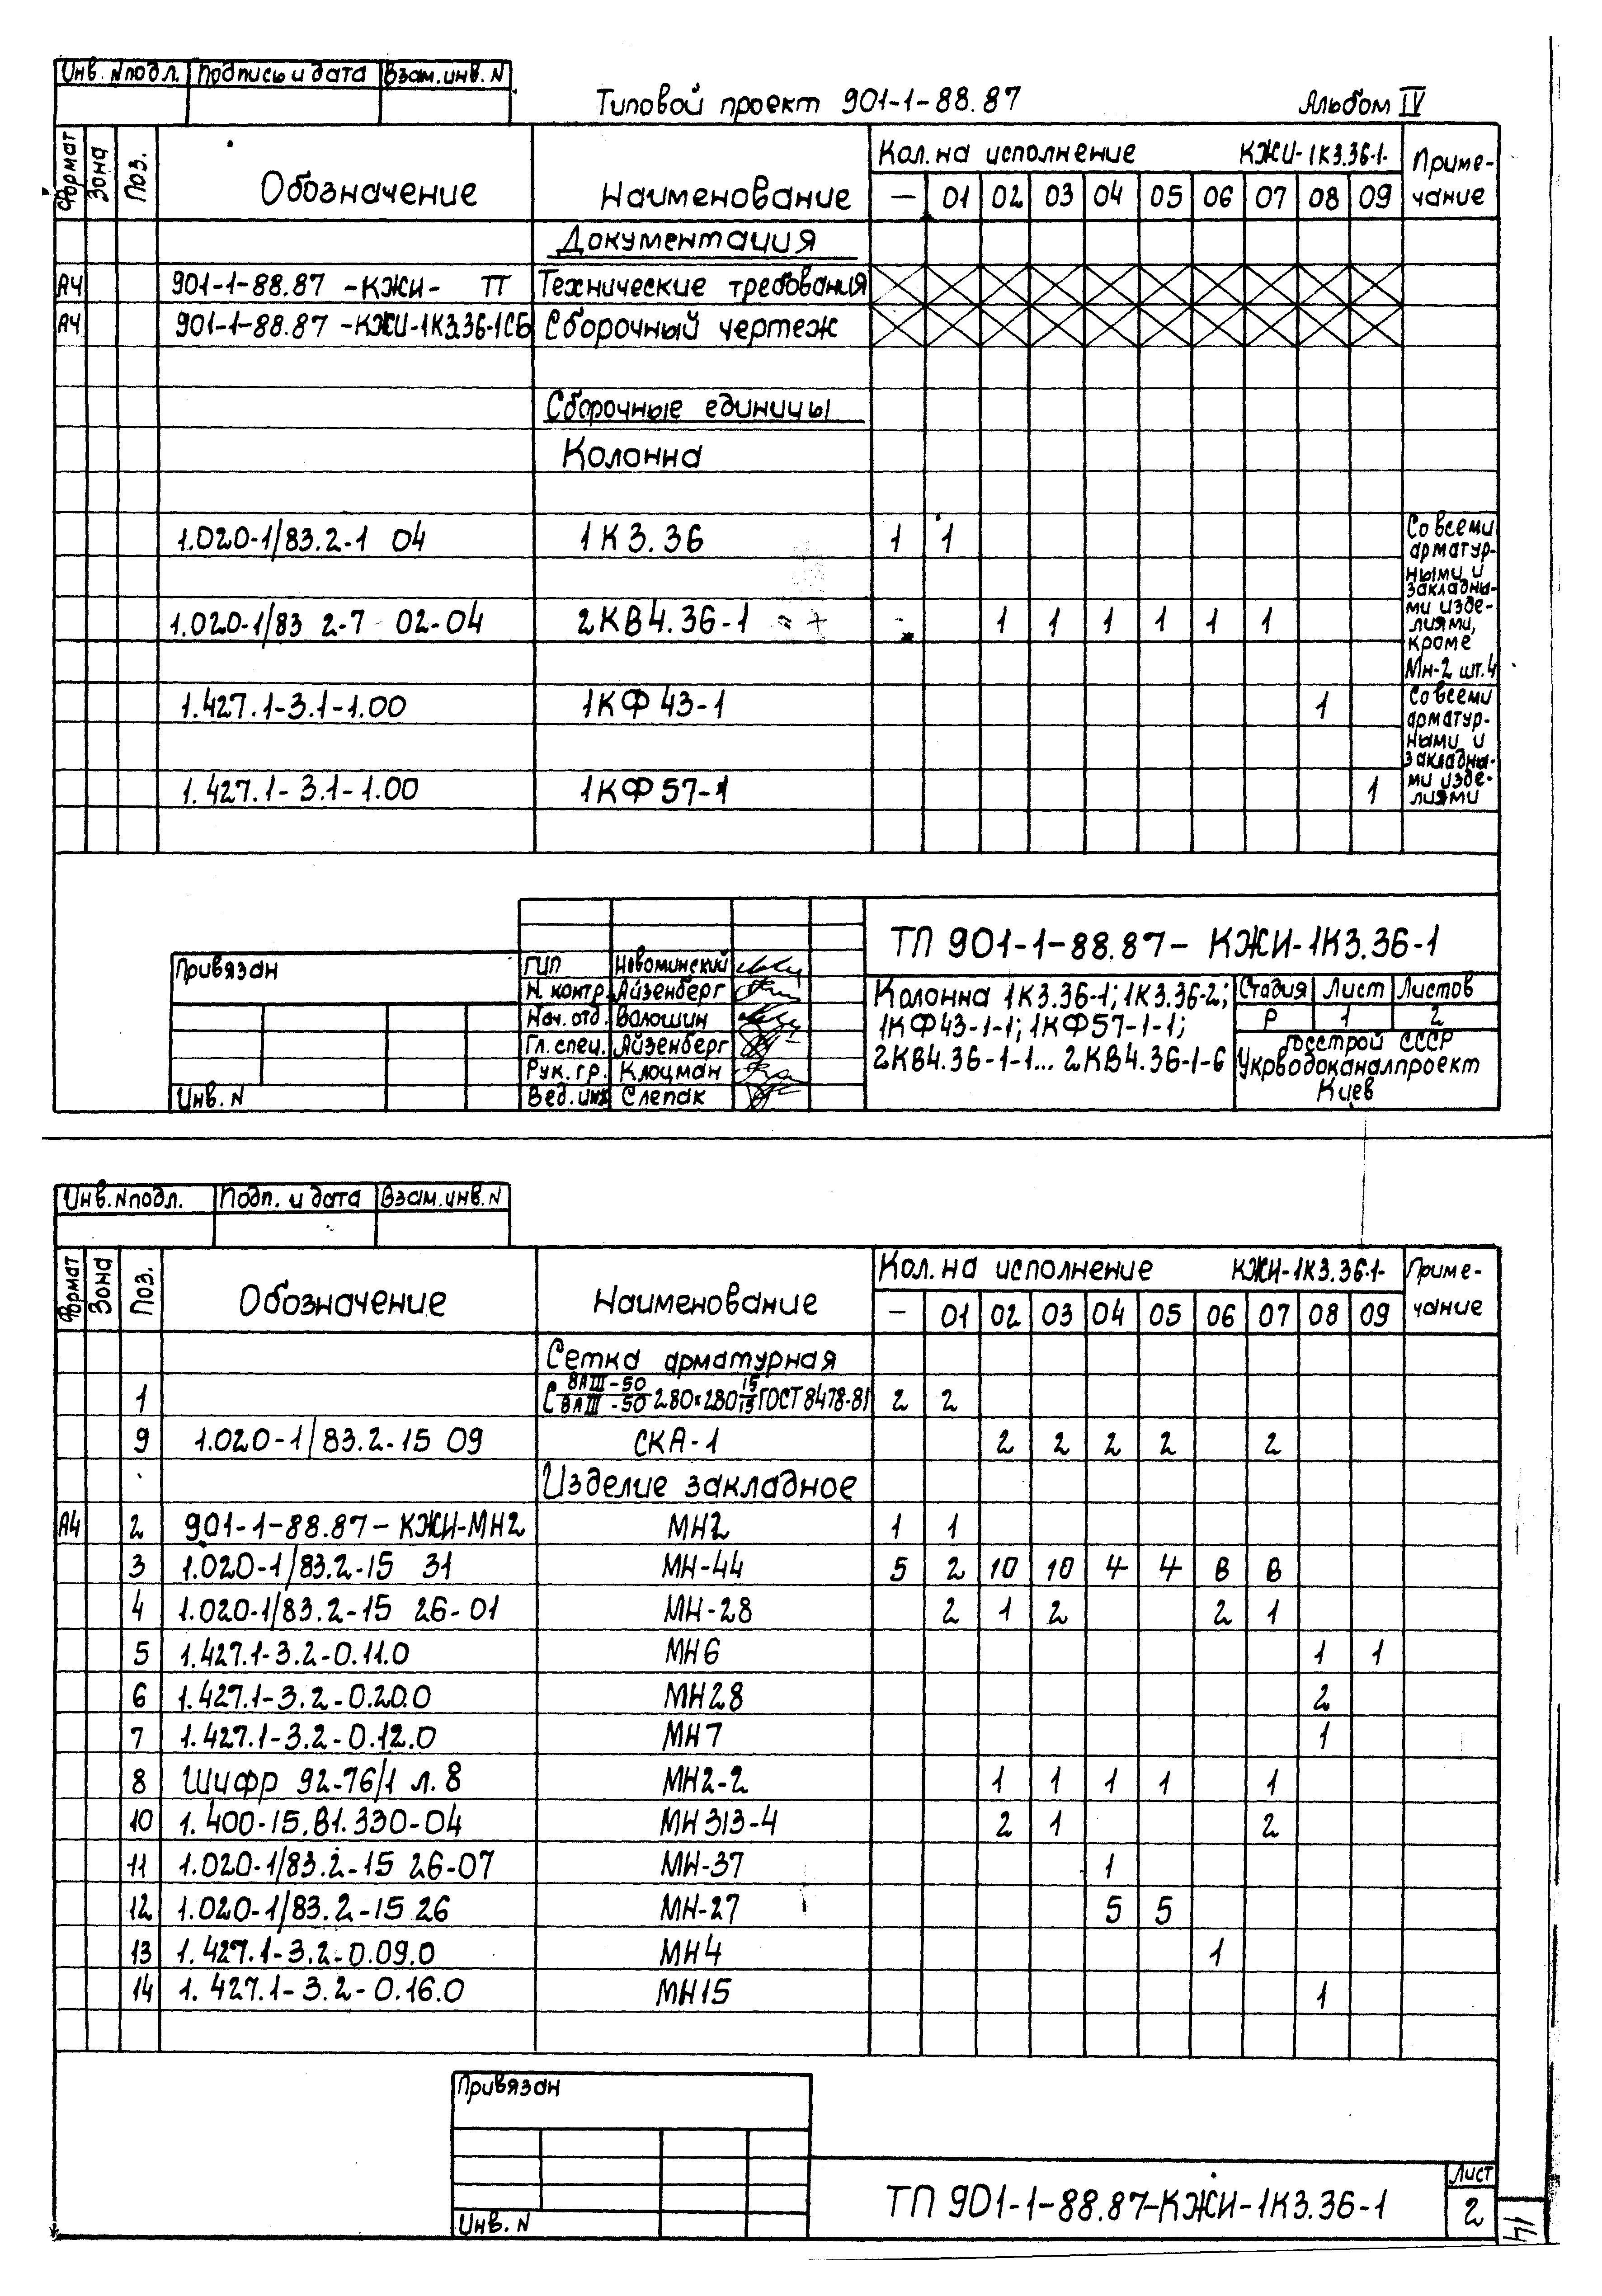 Инв. N подл. Подпись и дата Взам. инв. N
Типовой проект 901-1-88.87 Альбом IV
Формат Зона Поз. Обозначение Наименование Кол. на исполнение КЖИ-1К3.36-1- Примечание
— 01 02 03 04 05 06 07 08 09
Документация
А4 901-1-88.87 -КЖИ- ТТ Технические требования
А4 901-1-88.87 -КЖИ-1К3.36-1СБ Сборочный чертеж
Сборочные единицы
Колонна
1.020-1/83.2-1 04 1К3.36 1 1
Со всеми
арматур-
ными и
закладны-
ми изде-
лиями,
кроме
Мн-2 шт.4
1.020-1/83 2-7 02-04 2КВ4.36-1 1 1 1 1 1 1
1.427.1-3.1-1.00 1КФ 43-1 1
Со всеми
арматур-
ными и
закладны-
ми изде-
лиями
1.427.1-3.1-1.00 1КФ 57-1 1
ТП 901-1-88.87- КЖИ-1К3.36-1
Привязан
ГИП Новоминский
Н. контр. Айзенберг
Нач. отд. Волошин
Гл. спец. Айзенберг
Рук. гр. Клоцман
Вед. инж Слепак
Инв. N
Колонна 1К3.36-1; 1К3.36-2;
1КФ43-1-1; 1КФ57-1-1;
2КВ4.36-1-1... 2КВ4.36-1-6
Стадия Лист Листов
Р 1 2
Госстрой СССР
Укрводоканалпроект
Киев
Инв. N подл. Подп. и дата Взам. инв. N
Формат Зона Поз. Обозначение Наименование Кол. на исполнение КЖИ-1К3.36-1- Примечание
— 01 02 03 04 05 06 07 08 09
Сетка арматурная
1 С 8АIII-50/8АIII-50 280×280 15/15 ГОСТ 8478-81 2 2
9 1.020-1/83.2-15 09 СКА-1 2 2 2 2 2
Изделие закладное
А4 2 901-1-88.87- КЖИ-МН2 МН2 1 1
3 1.020-1/83.2-15 31 МН-44 5 2 10 10 4 4 8 8
4 1.020-1/83.2-15 26-01 МН-28 2 1 2 2 1
5 1.427.1-3.2-0.11.0 МН6 1 1
6 1.427.1-3.2-0.20.0 МН28 2
7 1.427.1-3.2-0.12.0 МН7 1
8 Шифр 92-76/1 л.8 МН2-2 1 1 1 1 1
10 1.400-15.В1.330-04 МН313-4 2 1 2
11 1.020-1/83.2-15 26-07 МН-37 1
12 1.020-1/83.2-15 26 МН-27 5 5
13 1.427.1-3.2-0.09.0 МН4 1
14 1.427.1-3.2-0.16.0 МН15 1
Привязан
Инв. N
ТП 901-1-88.87-КЖИ-1К3.36-1
Лист
2
14